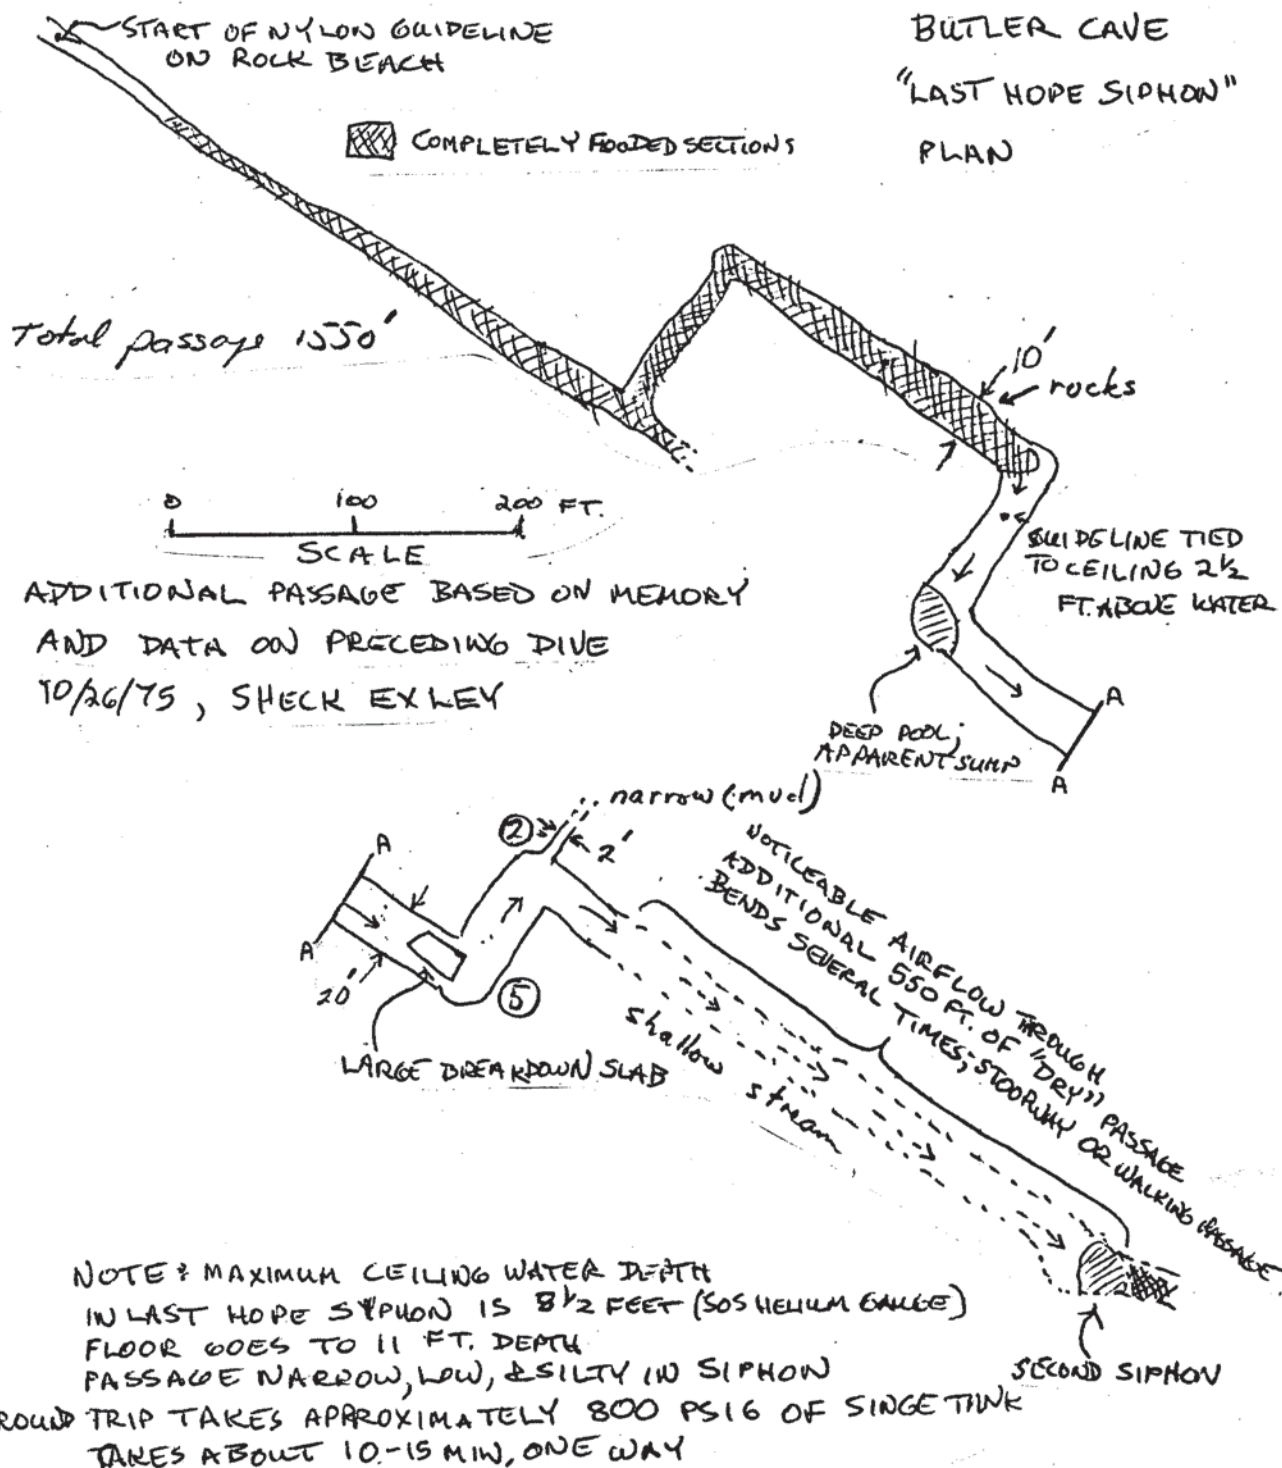 START OF NYLON GUIDELINE
ON ROCK BEACH
BUTLER CAVE
"LAST HOPE SIPHON"
PLAN
COMPLETELY FLOODED SECTIONS
Total passage 1550'
10'
rocks
0 100 200 FT.
SCALE
GUIDELINE TIED
TO CEILING 2½
FT. ABOVE WATER
ADDITIONAL PASSAGE BASED ON MEMORY
AND DATA ON PRECEDING DIVE
10/26/75, SHECK EXLEY
DEEP POOL;
APPARENT SUMP
A
A
narrow (mud)
2
2'
A
A
20'
5
LARGE BREAKDOWN SLAB
shallow stream
NOTICEABLE AIRFLOW THROUGH
ADDITIONAL 550 FT. OF "DRY" PASSAGE
BENDS SEVERAL TIMES; STOORWAY OR WALKING PASSAGE
SECOND SIPHON
NOTE: MAXIMUM CEILING WATER DEPTH
IN LAST HOPE SYPHON IS 8½ FEET (SOS HELIUM GAUGE)
FLOOR GOES TO 11 FT. DEPTH
PASSAGE NARROW, LOW, & SILTY IN SIPHON
ROUND TRIP TAKES APPROXIMATELY 800 PSIG OF SINGE TANK
TAKES ABOUT 10-15 MIN, ONE WAY